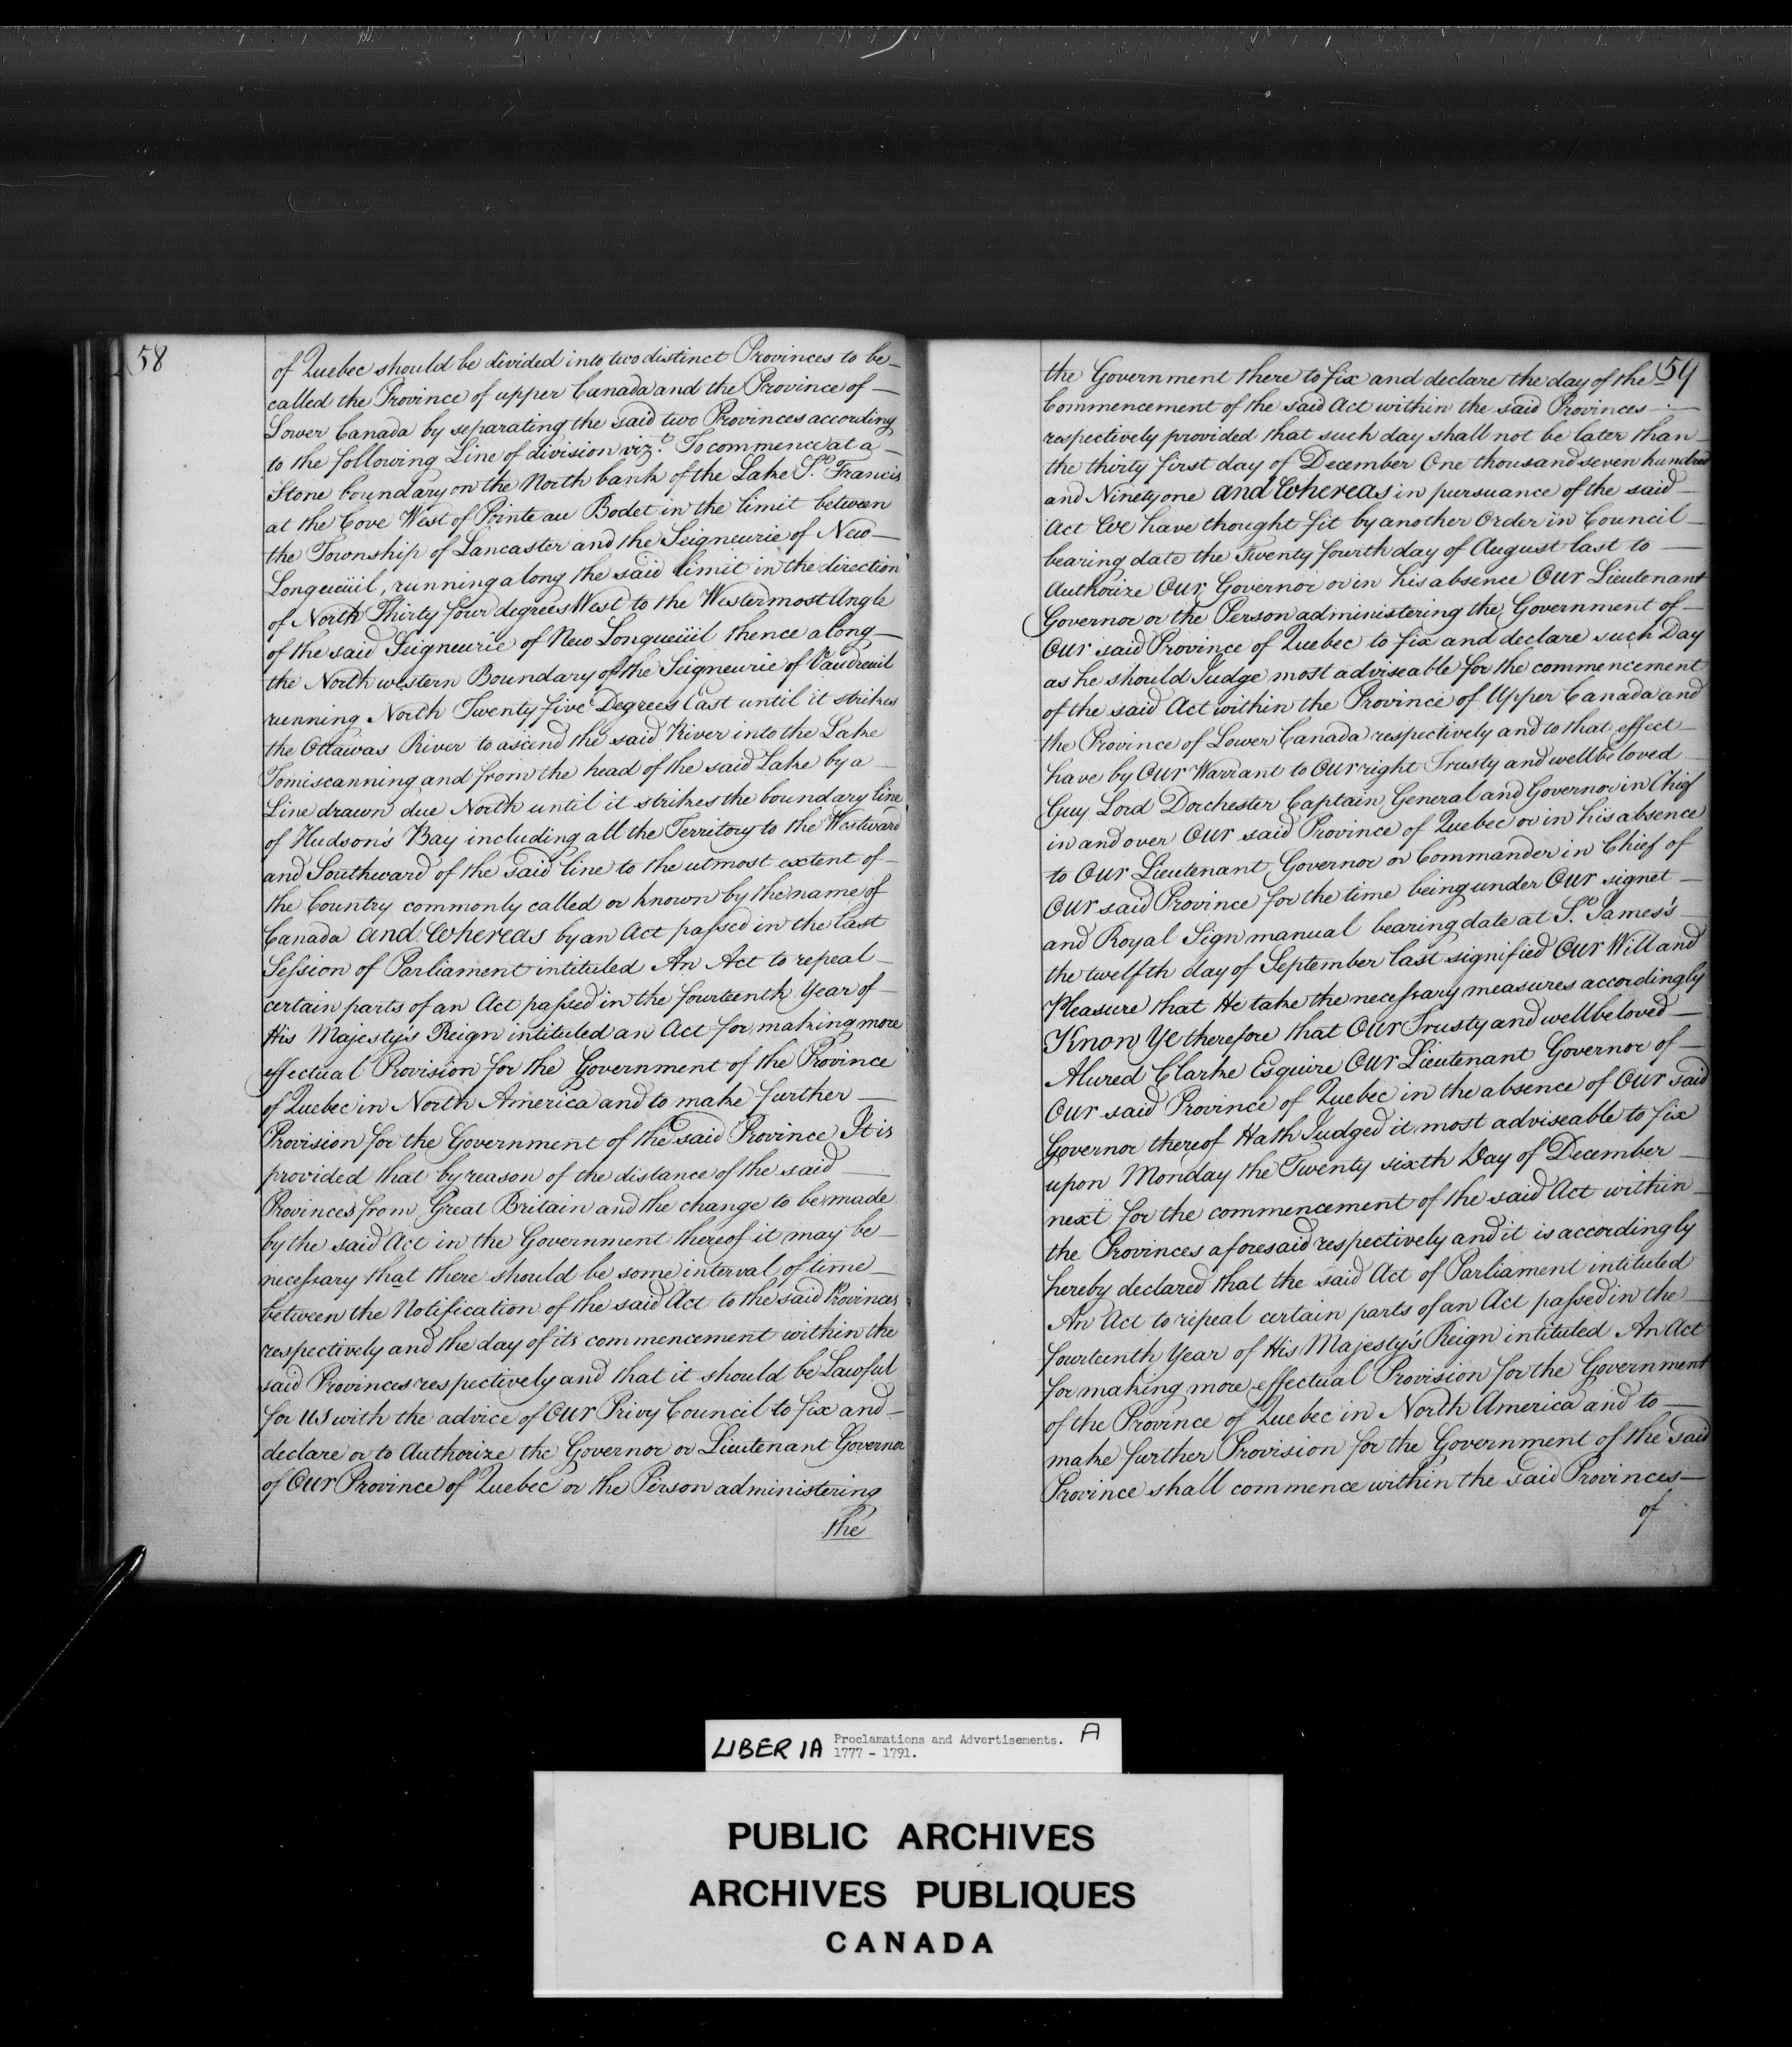 58
of Quebec should be divided into two distinct Provinces to be
called the Province of upper Canada and the Province of
Lower Canada by separating the said two Provinces according
to the following Line of division vizt. To commence at a
Stone boundary on the North bank of the Lake St. Francis
at the Cove West of Pointe au Bodet in the limit between
the Township of Lancaster and the Seigneurie of New
Longueüil, running along the said limit in the direction
of North Thirty four degrees West to the Westermost Angle
of the said Seigneurie of New Longueüil thence along
the North western Boundary of the Seigneurie of Vaudreuil
running North Twenty five Degrees East until it strikes
the Ottawas River to ascend the said River into the Lake
Tomiscanning and from the head of the said Lake by a
Line drawn due North until it strikes the boundary line
of Hudson's Bay including all the Territory to the Westward
and Southward of the said line to the utmost extent of
the Country commonly called or known by the name of
Canada and Whereas by an Act passed in the last
Session of Parliament intituled An Act to repeal
certain parts of an Act passed in the fourteenth Year of
His Majesty's Reign intituled an Act for making more
effectual Provision for the Government of the Province
of Quebec in North America and to make further
Provision for the Government of the said Province It is
provided that by reason of the distance of the said
Provinces from Great Britain and the change to be made
by the said Act in the Government thereof it may be
necessary that there should be some interval of time
between the Notification of the said Act to the said Provinces
respectively and the day of its commencement within the
said Provinces respectively and that it should be Lawful
for us with the advice of Our Privy Council to fix and
declare or to Authorize the Governor or Lieutenant Governor
of Our Province of Quebec or the Person administering
the
59
the Government there to fix and declare the day of the
Commencement of the said Act within the said Provinces
respectively provided that such day shall not be later than
the thirty first day of December One thousand seven hundred
and Ninety one and Whereas in pursuance of the said
Act We have thought fit by another Order in Council
bearing date the Twenty fourth day of August last to
Authorize Our Governor or in his absence Our Lieutenant
Governor or the Person administering the Government of
Our said Province of Quebec to fix and declare such Day
as he should Judge most adviseable for the commencement
of the said Act within the Province of Upper Canada and
the Province of Lower Canada respectively and to that effect
have by Our Warrant to Our right Trusty and wellbeloved
Guy Lord Dorchester Captain General and Governor in Chief
in and over Our said Province of Quebec or in his absence
to Our Lieutenant Governor or Commander in Chief of
Our said Province for the time being under Our signet
and Royal Sign manual bearing date at St. James's
the twelfth day of September last signified Our Will and
Pleasure that He take the necessary measures accordingly
Know Ye therefore that Our Trusty and wellbeloved
Alured Clarke Esquire Our Lieutenant Governor of
Our said Province of Quebec in the absence of Our said
Governor thereof Hath Judged it most adviseable to fix
upon Monday the Twenty sixth Day of December
next for the commencement of the said Act within
the Provinces aforesaid respectively and it is accordingly
hereby declared that the said Act of Parliament intituled
An Act to repeal certain parts of an Act passed in the
fourteenth Year of His Majesty's Reign intituled An Act
for making more effectual Provision for the Government
of the Province of Quebec in North America and to
make further Provision for the Government of the said
Province shall commence within the said Provinces
of
LIBER 1A Proclamations and Advertisements. A
1777 - 1791.
PUBLIC ARCHIVES
ARCHIVES PUBLIQUES
CANADA